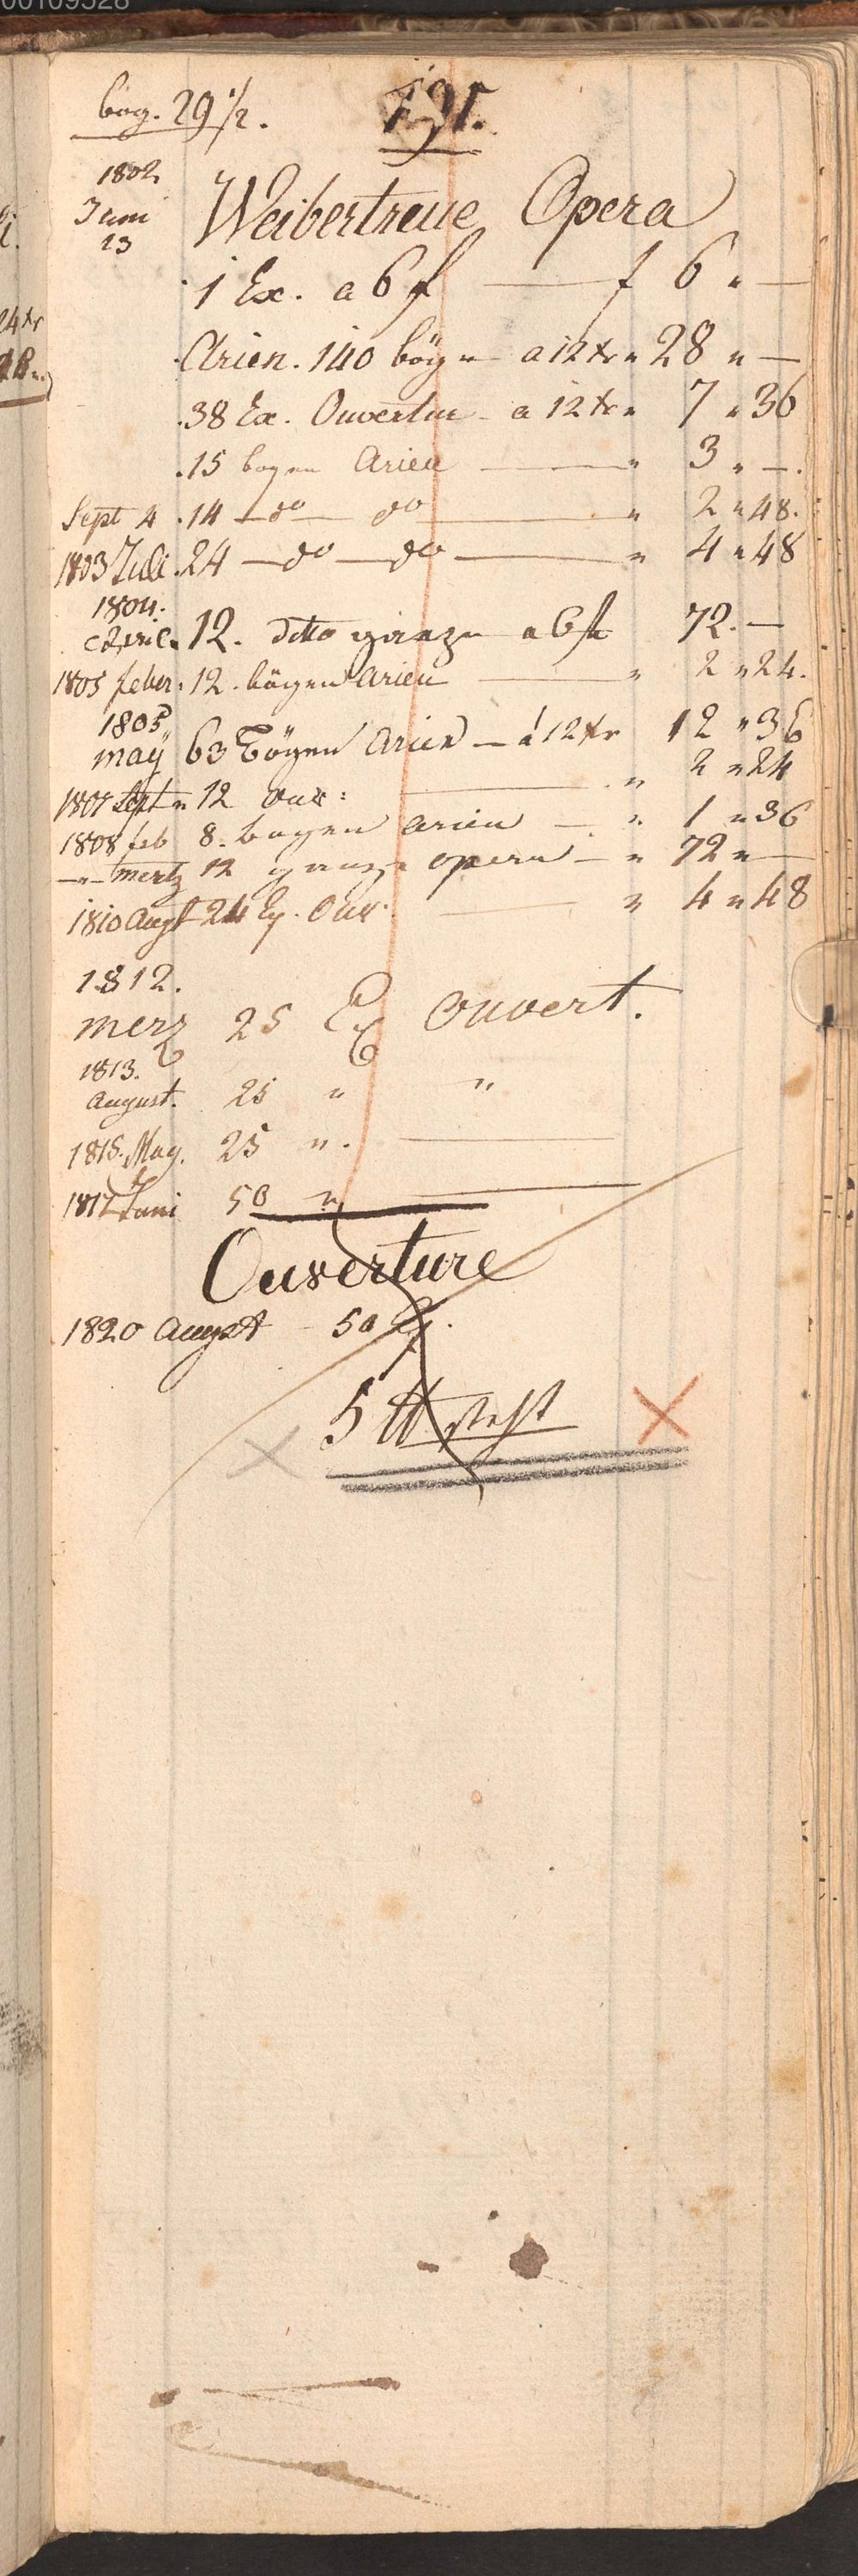 00109528
bog. 29 1/2.
191.
1802
Juni
23
Weibertreue Opera
1 Ex. a 6 f — f 6 " —
Arien. 140 bögen a 12 xr " 28 " —
38 Ex. Ouvertur - a 12 xr " 7 " 36
15 bogen Arien — " 3 " —.
Sept 4 . 14 — do — do — " 2 " 48.
1803 Juli . 24 — do — do — " 4 " 48
1804.
April . 12. ditto ganze a 6 fl 72. —
1805 feber . 12. bögen Arien — " 2 " 24.
1805
maÿ 63 Bögen Arien — á 12 xr 12 " 36
1807 Sept " 12 Ouv: — " 2 " 24
1808 feb 8. bogen arien — " 1 " 36
— " — mertz 12 ganze opern — " 72 " —
1810 Augst 24 Ex. Ouv. — " 4 " 48
1812.
merz 25 Ex Ouvert.
1813.
August. 25 " "
1815. May. 25 ". —
1817 Juni 50 " —
Ouverture
1820 August - 50 Ex.
5 tt steht
24 xr